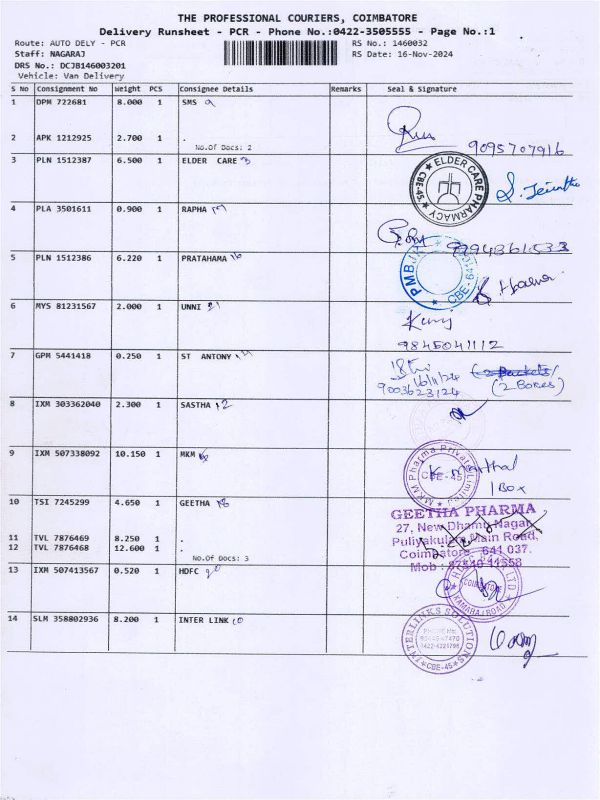 THE PROFESSIONAL COURIERS, COIMBATORE
Delivery Runsheet - PCR - Phone No.:0422-3505555 - Page No.:1
Route: AUTO DELY - PCR RS No.: 1460032
Staff: NAGARAJ RS Date: 16-Nov-2024
DRS No.: DCJB146003201
Vehicle: Van Delivery
S No Consignment No Weight PCS Consignee Details Remarks Seal & Signature
1 DPM 722681 8.000 1 SMS
2 APK 1212925 2.700 1 . 9095707916
No.Of Docs: 2
3 PLN 1512387 6.500 1 ELDER CARE ELDER CARE PHARMACY CBE-45
4 PLA 3501611 0.900 1 RAPHA
5 PLN 1512386 6.220 1 PRATAHAMA 16 PMBJK
6 MYS 81231567 2.000 1 UNNI 21
9845041112
7 GPM 5441418 0.250 1 ST ANTONY 14 16/11/24 2 Packets
9003623124 (2 Boxes)
8 IXM 303362040 2.300 1 SASTHA 12
9 IXM 507338092 10.150 1 MKM MKM Pharma Private Limited CBE-45
1 Box
10 TSI 7245299 4.650 1 GEETHA GEETHA PHARMA
27, New Dhamu Nagar,
Puliyakulam Main Road,
11 TVL 7876469 8.250 1 .
12 TVL 7876468 12.600 1 . Coimbatore 641 037.
No.Of Docs: 3
Mob :
13 IXM 507413567 0.520 1 HDFC COIMBATORE KAMARAJ ROAD
14 SLM 358802936 8.200 1 INTER LINK INTERLINKS SOLUTIONS CBE-45
PHONE NO.